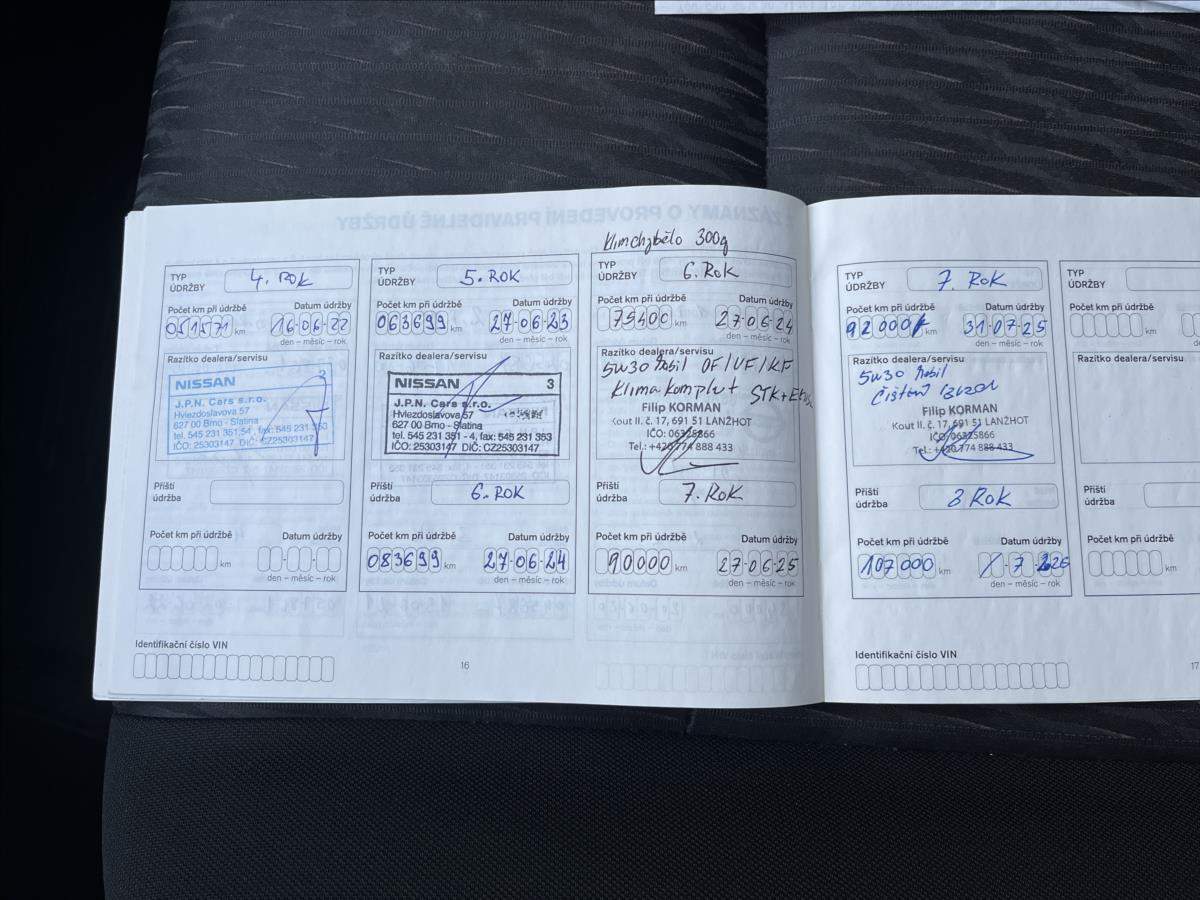 Klima chybělo 300g
TYP ÚDRŽBY 4. ROK
Počet km při údržbě Datum údržby
051571 km 16-06-22
den – měsíc – rok
Razítko dealera/servisu
NISSAN
J.P.N. Cars s.r.o.
Hviezdoslavova 57
627 00 Brno - Slatina
tel. 545 231 351-54, fax: 545 231 353
IČO: 25303147, DIČ: CZ25303147
Příští údržba
Počet km při údržbě Datum údržby
km
den – měsíc – rok
Identifikační číslo VIN
TYP ÚDRŽBY 5. ROK
Počet km při údržbě Datum údržby
063699 km 27-06-23
den – měsíc – rok
Razítko dealera/servisu
NISSAN 3
J.P.N. Cars s.r.o.
Hviezdoslavova 57
627 00 Brno - Slatina
tel. 545 231 351 - 4, fax: 545 231 353
IČO: 25303147 DIČ: CZ25303147
Příští údržba 6. ROK
Počet km při údržbě Datum údržby
083699 km 27-06-24
den – měsíc – rok
16
TYP ÚDRŽBY 6. ROK
Počet km při údržbě Datum údržby
75400 km 27-06-24
den – měsíc – rok
Razítko dealera/servisu
5W30 Mobil OF/VF/KF
Klima komplet STK+
Filip KORMAN
Kout II. č. 17, 691 51 LANŽHOT
IČO: 06325866
Tel.: +420 774 888 433
Příští údržba 7. ROK
Počet km při údržbě Datum údržby
90000 km 27-06-25
den – měsíc – rok
TYP ÚDRŽBY 7. ROK
Počet km při údržbě Datum údržby
92000 km 31-07-25
den – měsíc – rok
Razítko dealera/servisu
5W30 Mobil
Čištění brzd
Filip KORMAN
Kout II. č. 17, 691 51 LANŽHOT
IČO: 06325866
Tel.: +420 774 888 433
Příští údržba 8 ROK
Počet km při údržbě Datum údržby
107000 km 7
den – měsíc – rok
Identifikační číslo VIN
TYP ÚDRŽBY
Počet km při údržbě
km
Razítko dealera/servisu
Příští údržba
Počet km při údržbě
km
17